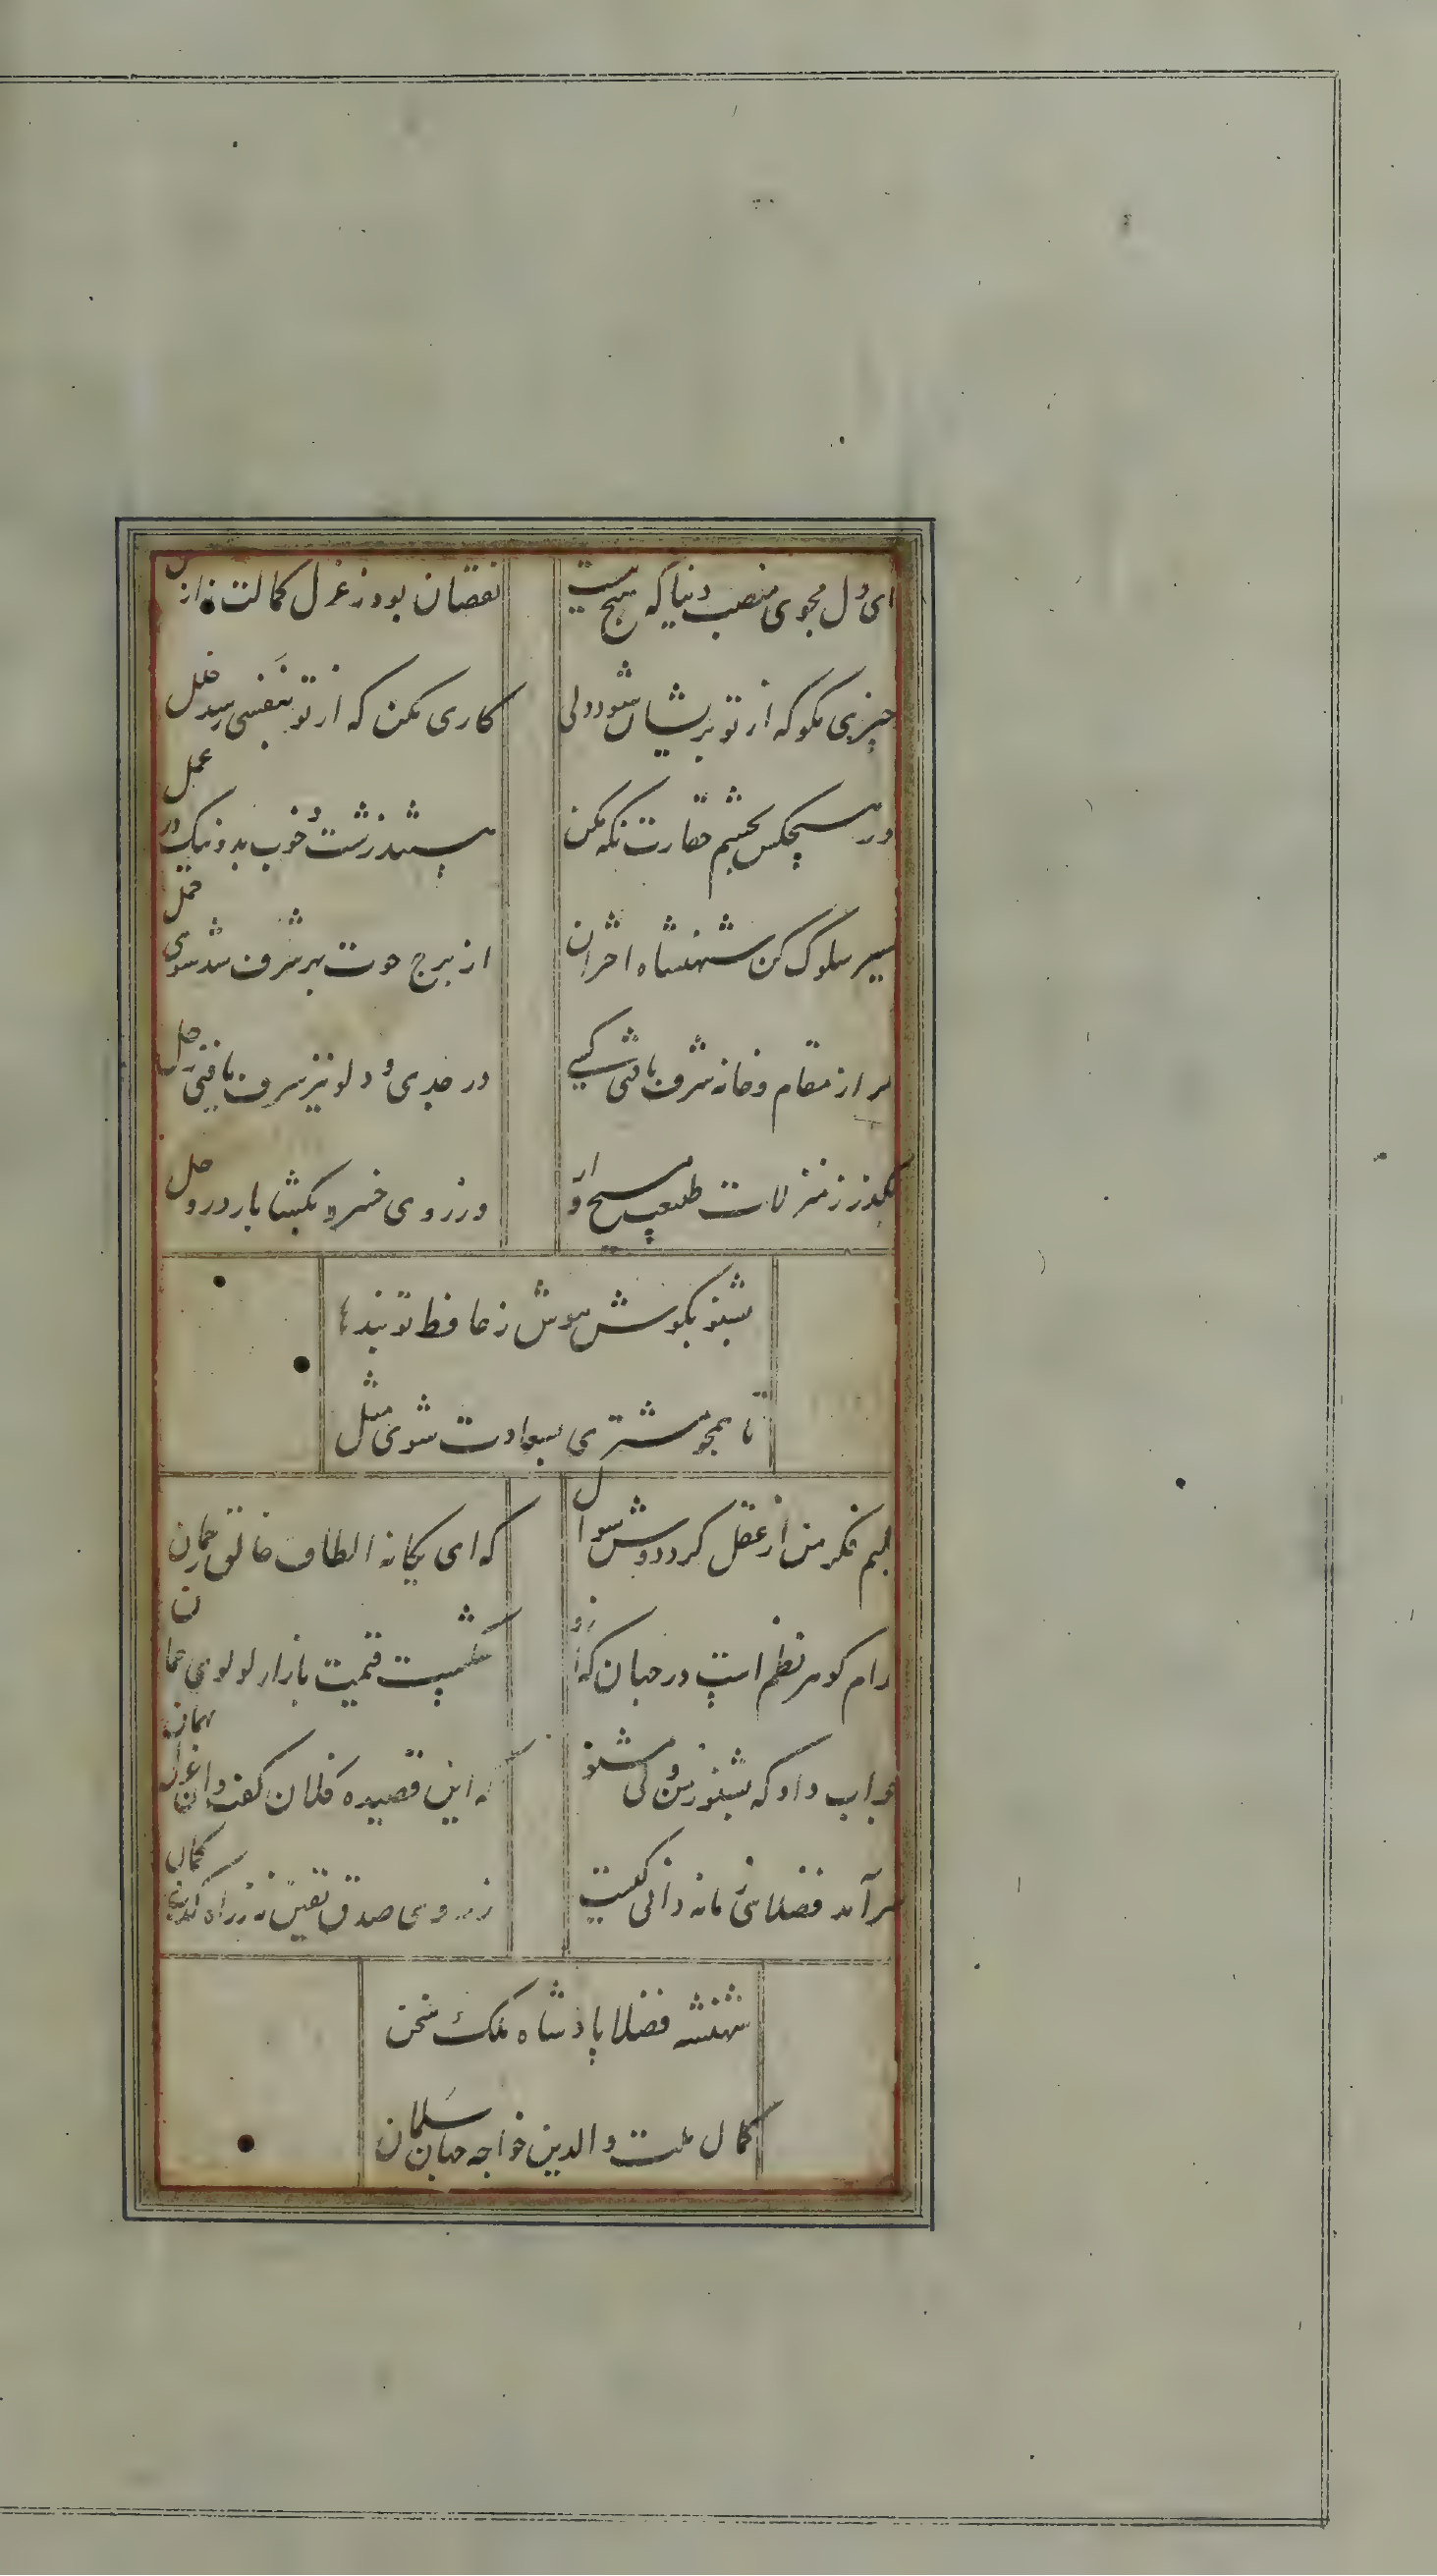 ای دل مجوی منصب دنیا که هیچ نیست
نقصان بود ز عزل کمالت نه از
چیزی مگو که از تو پریشان شود دلی
کاری مکن که از تو بنفسی رسد خلل
در هیچکس بچشم حقارت نگه مکن
مپسند زشت و خوب بد و نیک در عمل
سیر سلوک کن شهنشاه اختران
از برج حوت بهر شرف شد سوی حمل
هر از مقام و خانه شرف یافتی کسی
در جدی و دلو نیز شرف یافتی زحل
بگذر ز منزلات طبیعت مسیح وار
وز روی خسرو بگشا بار در وحل
بشنو بگوش هوش ز حافظ تو پندها
تا همچو مشتری بسعادت شوی مثل
فکر من از عقل کرد دوش سوال
که ای یگانه الطاف خالق رحمان
کدام گوهر نظم است در جهان که ازو
شکست قیمت بازار لولوی عمان
جواب داد که بشنو ز من ولی مشنو
که این قصیده فلان گفت وان غزل بهمان
سرآمد فضلای زمانه دانی کیست
ز روی صدق و یقین نه ز راه کذب و گمان
شهنشه فضلا پادشاه ملک سخن
کمال ملت والدین خواجه جهان سلمان